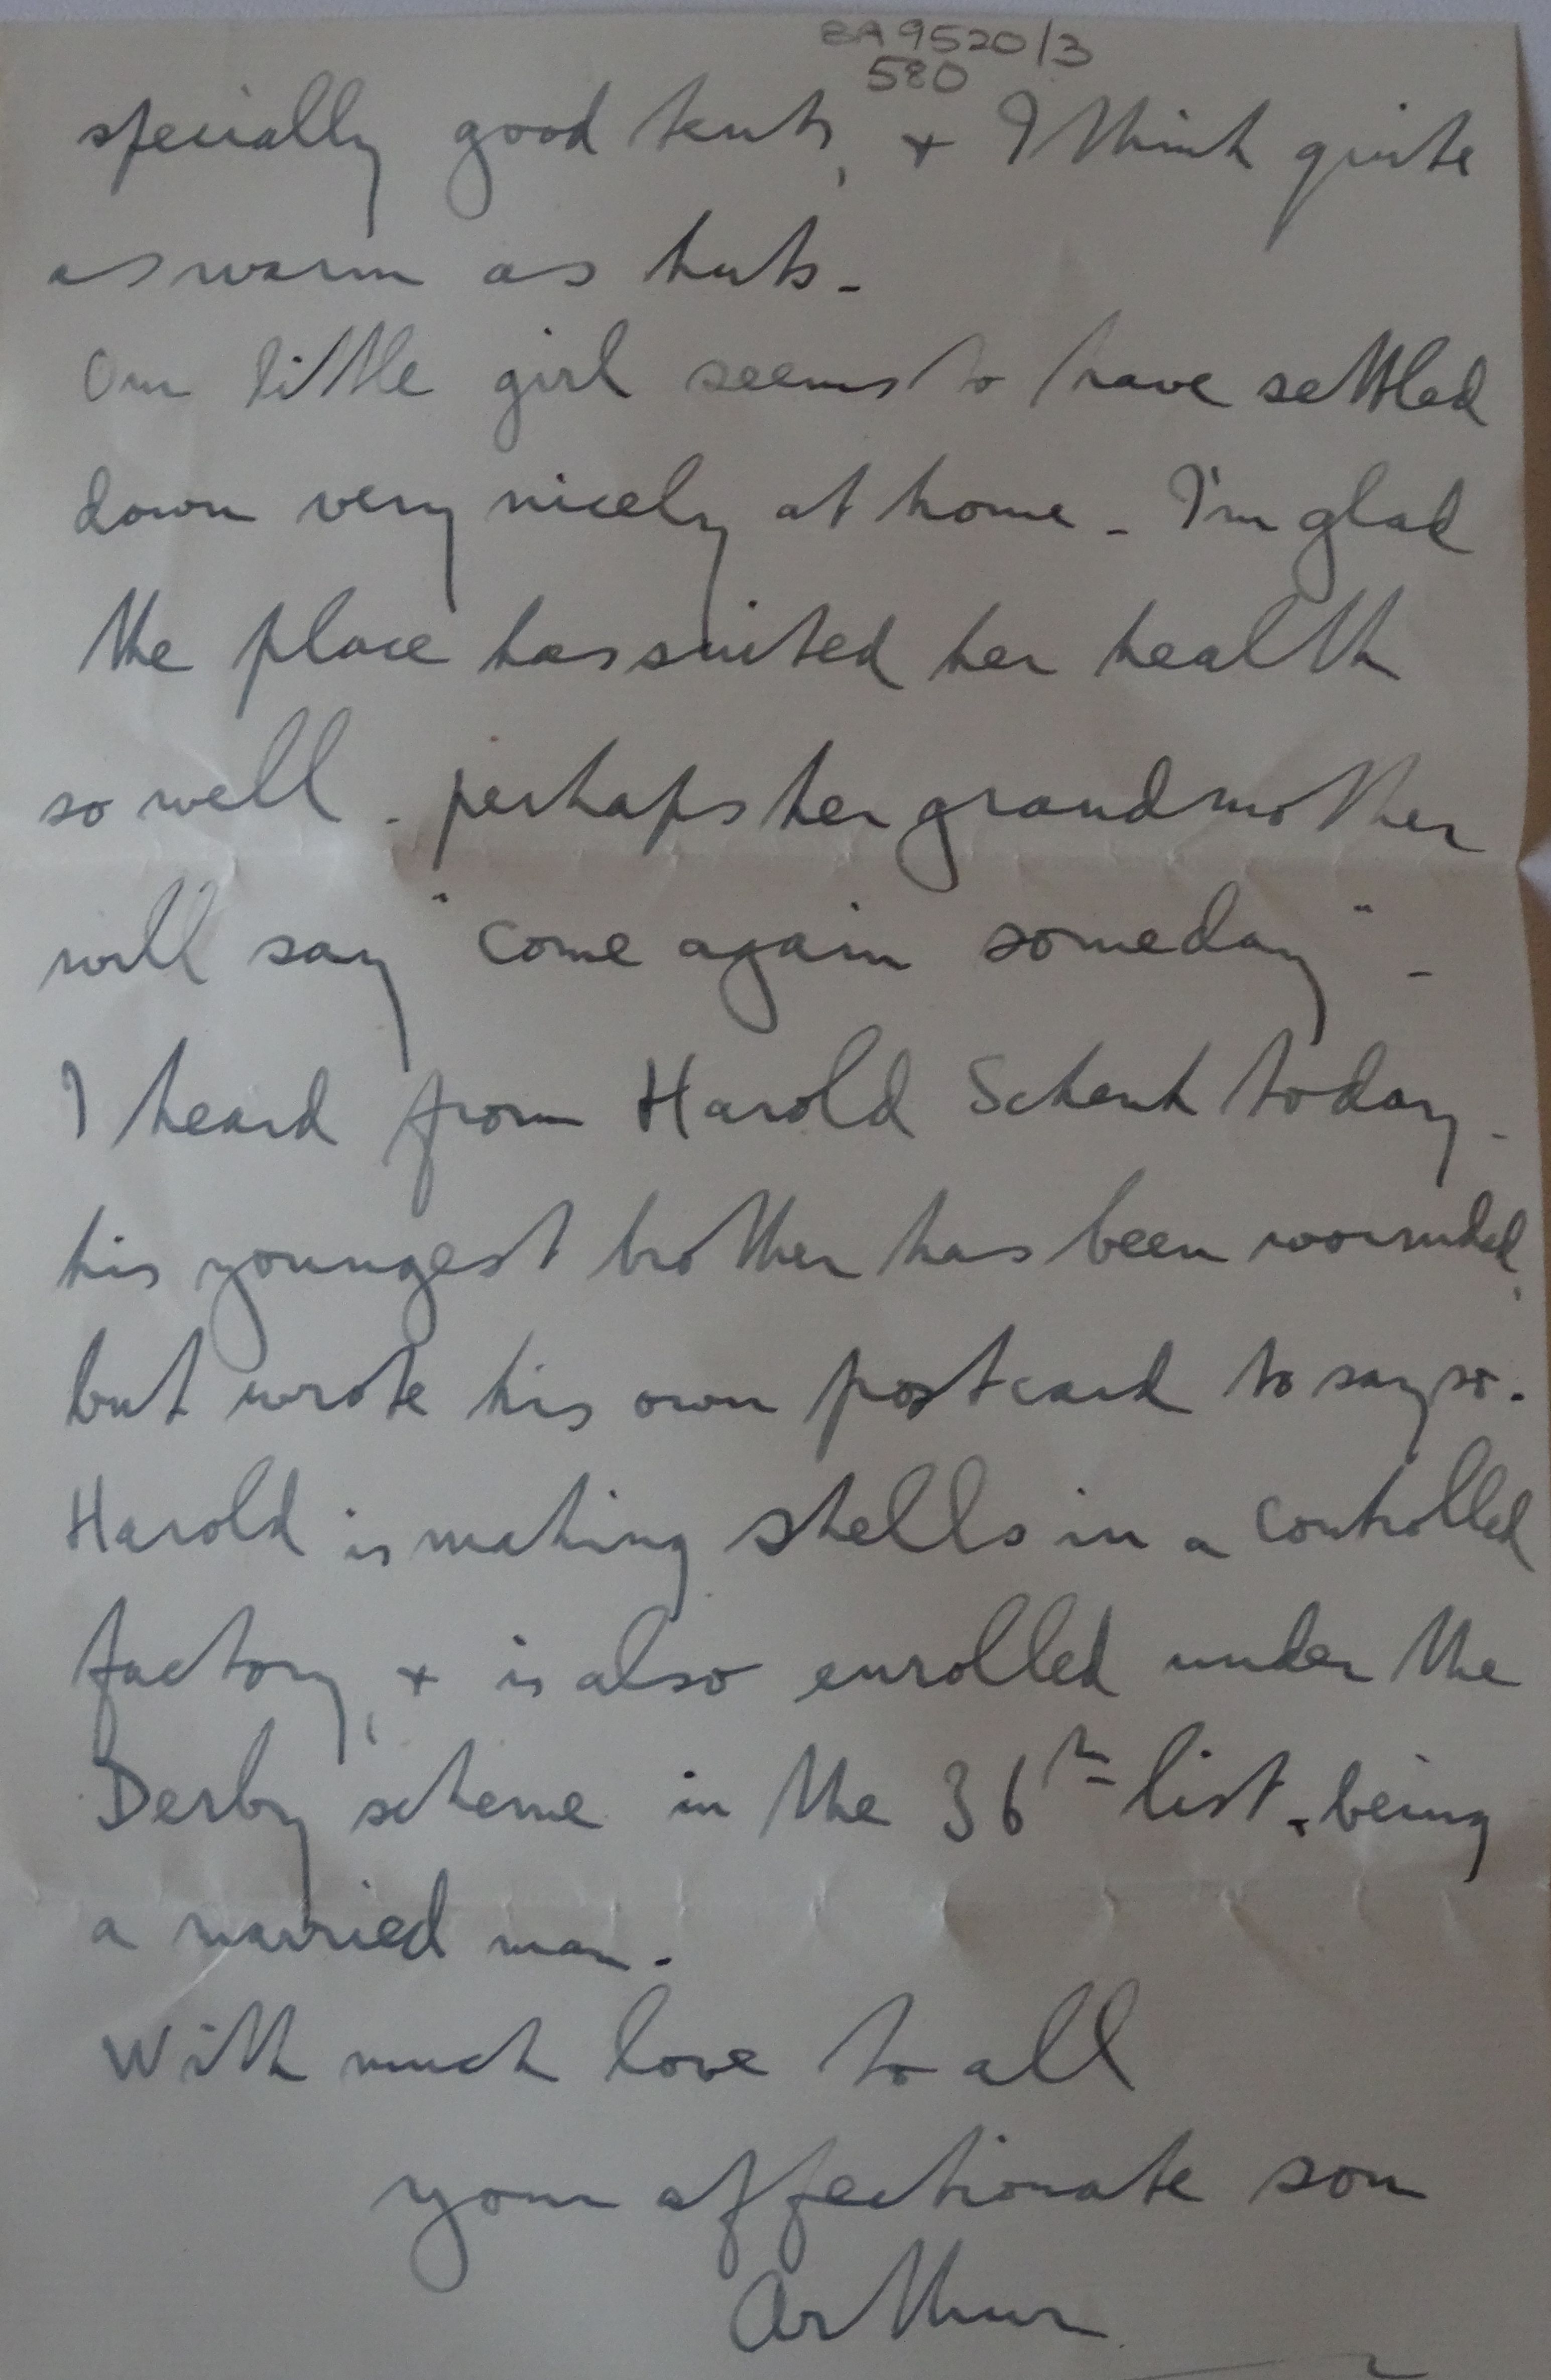 BA 9520/3
580
specially good tents, + I think quite
as warm as huts -
Our little girl seems to have settled
down very nicely at home - I'm glad
the place has suited her health
so well - perhaps her grandmother
will say "come again someday" -
I heard from Harold Schenk today -
his youngest brother has been wounded,
but wrote his own postcard to say so.
Harold is making shells in a controlled
factory, + is also enrolled under the
Derby scheme in the 36th list, being
a married man.
With much love to all
your affectionate son
Arthur